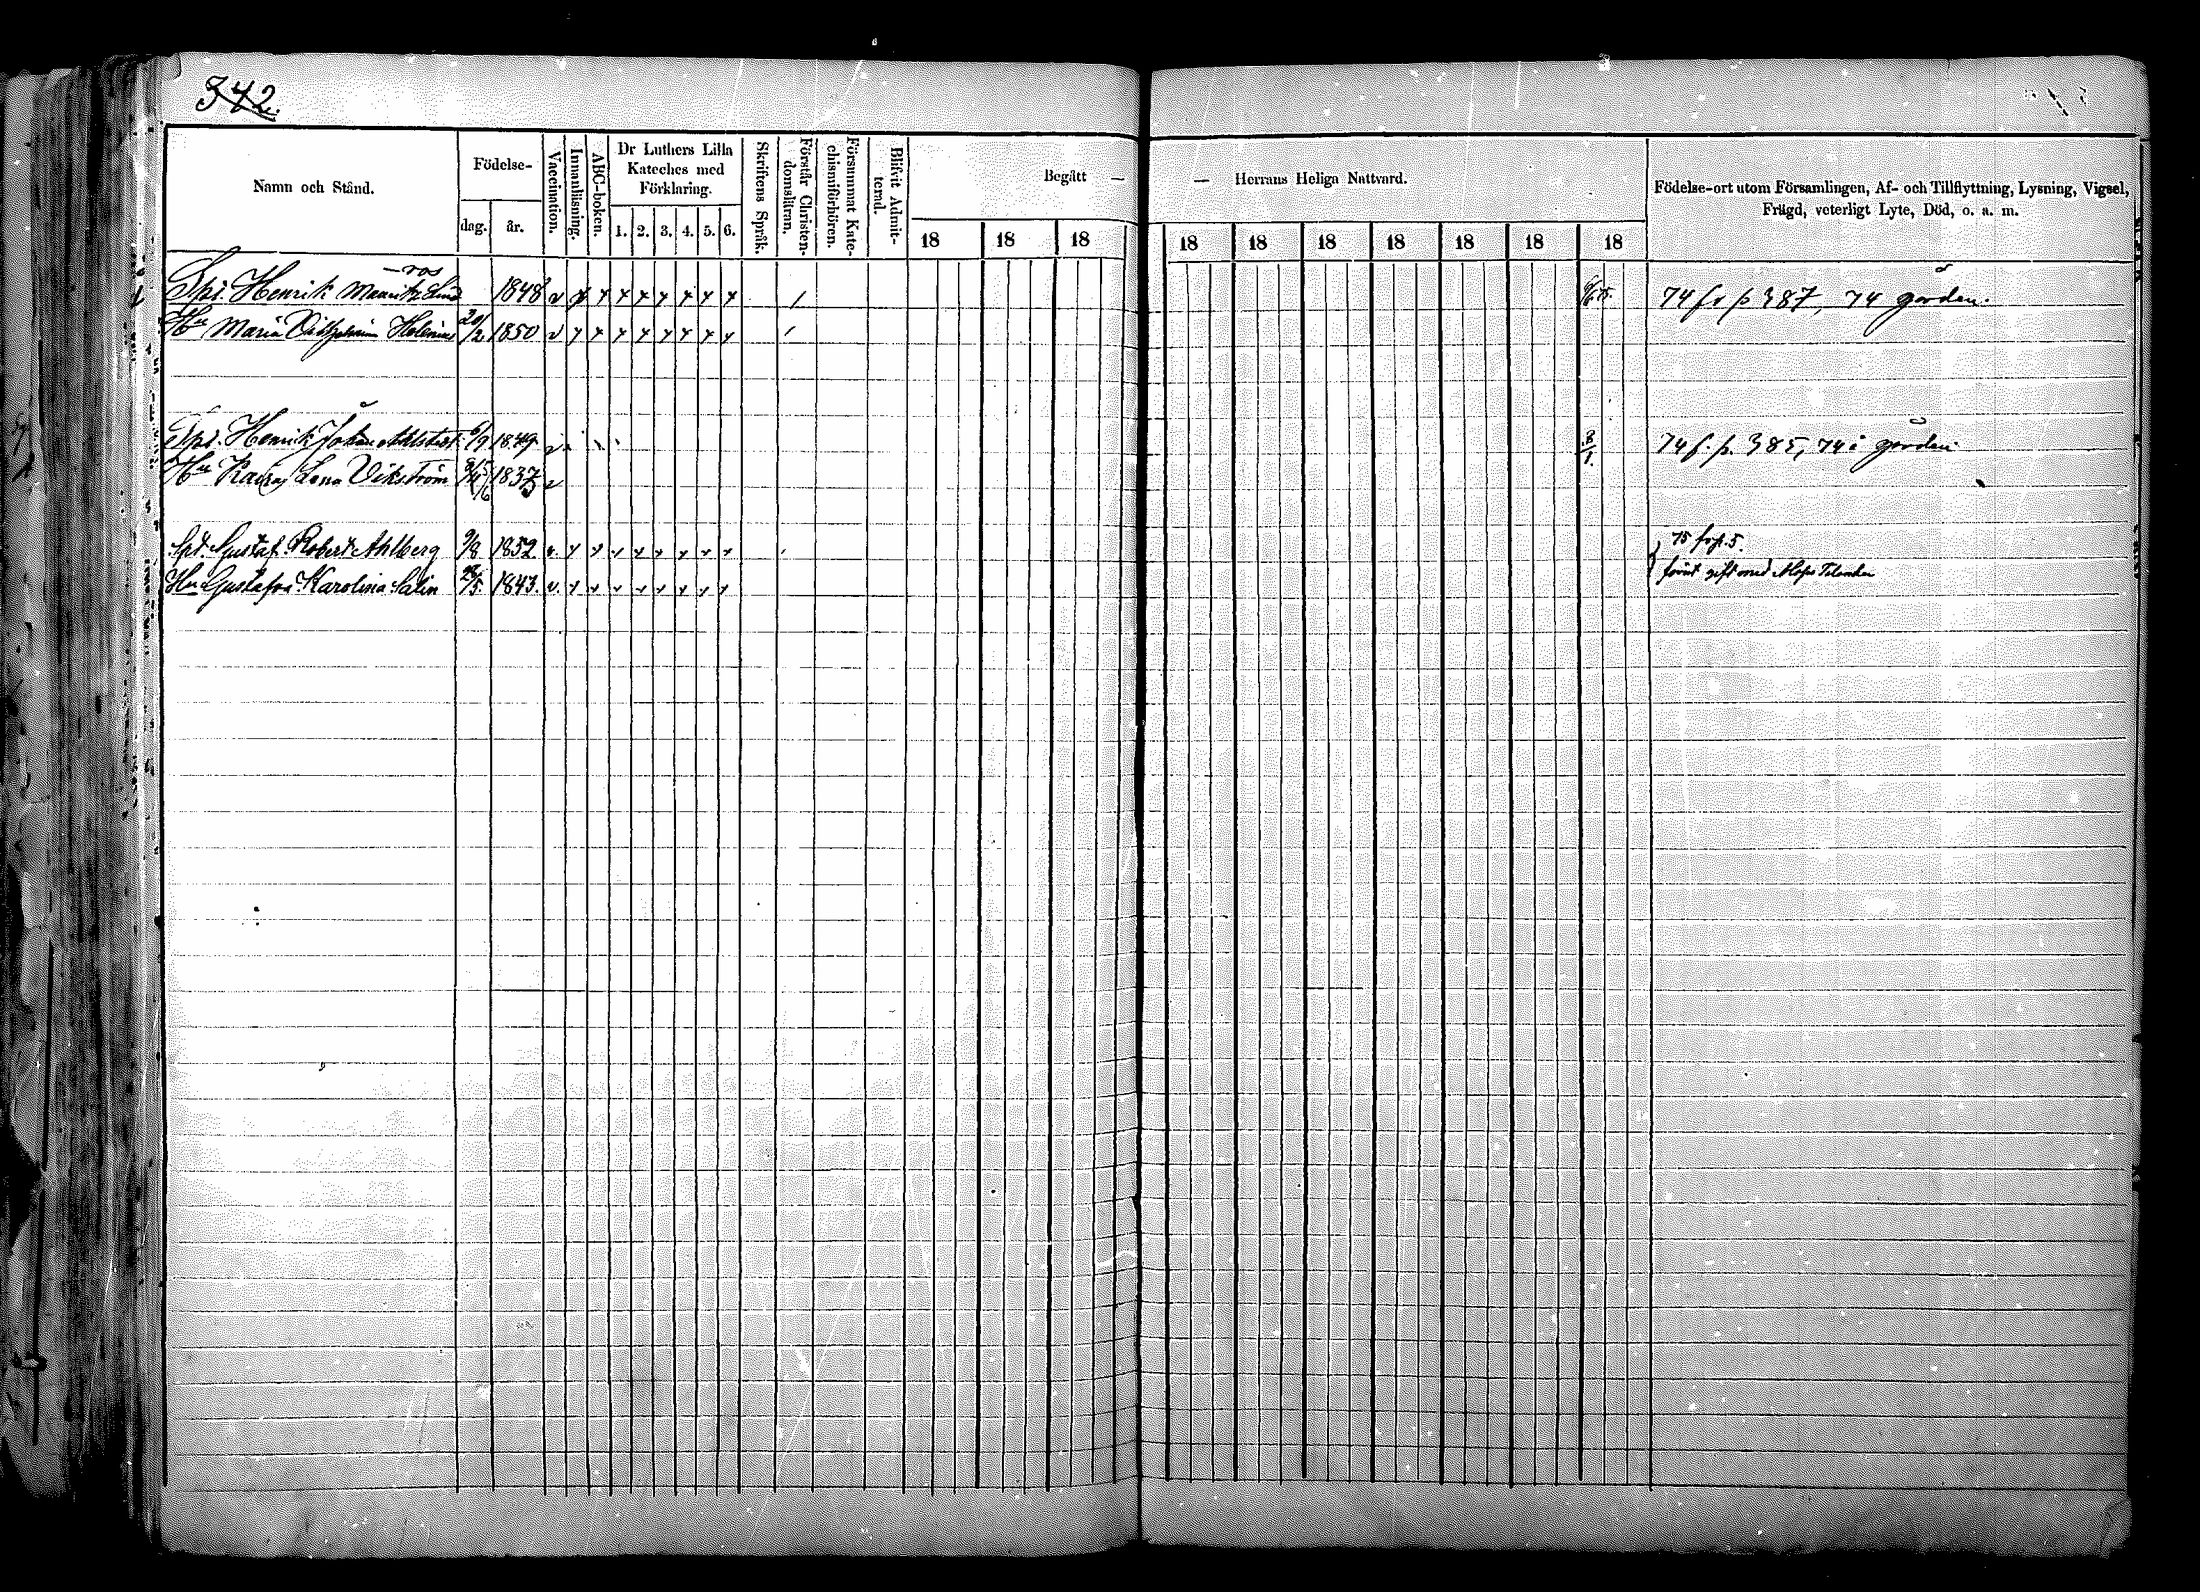 342.
Namn och Stånd.
Födelse-
dag.
år.
Vaccination.
Innanläsning.
ABC-boken.
Dr Luthers Lilla
Kateches med
Förklaring.
1. 2. 3. 4. 5. 6.
Skriftens Språk.
Förstår Christen-
domsläran.
Försummat Kate-
chismiförhören.
Blifvit Admit-
terad.
Begått —
— Herrans Heliga Nattvard.
18 18 18 18 18 18 18 18 18 18
Födelse-ort utom Församlingen, Af- och Tillflyttning, Lysning, Vigsel,
Frägd, veterligt Lyte, Död, o. a. m.
-ros
Henrik Mauritz Lind 1848 74 fr p 387, 74 gården.
Hu Maria Vilhelmina Helenius 20/2 1850
Henrik Johan Ahlstedt 6/9 1849 3/1. 74 f. p. 385, 74 i gården
Hu Lena Vikström 1837
Gustaf Robert Ahlberg 9/8 1852 75 fr p. 5.
Hu Gustafva Karolina Salin 1843. förut gift med Telenker